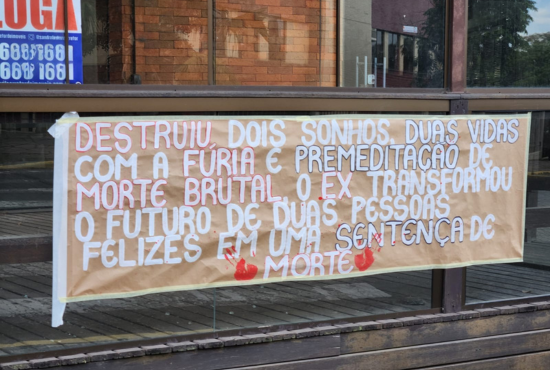 LUGA
688 1681
668 1681
DESTRUIU DOIS SONHOS, DUAS VIDAS
COM A FÚRIA E PREMEDITAÇÃO DE
MORTE BRUTAL. O EX TRANSFORMOU
O FUTURO DE DUAS PESSOAS
FELIZES EM UMA SENTENÇA DE
MORTE